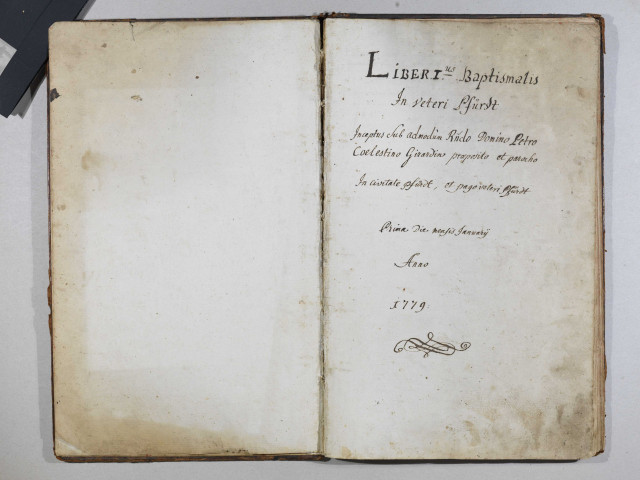 LIBER Ius Baptismalis
In veteri Pfürdt
Inceptus Sub admodūm Rndo Domino Petro
Coelestino Girardino præposito et parocho
In civitate Pfürdt, et pago veteri Pfürdt
Prima Die mensis January
Anno
1779